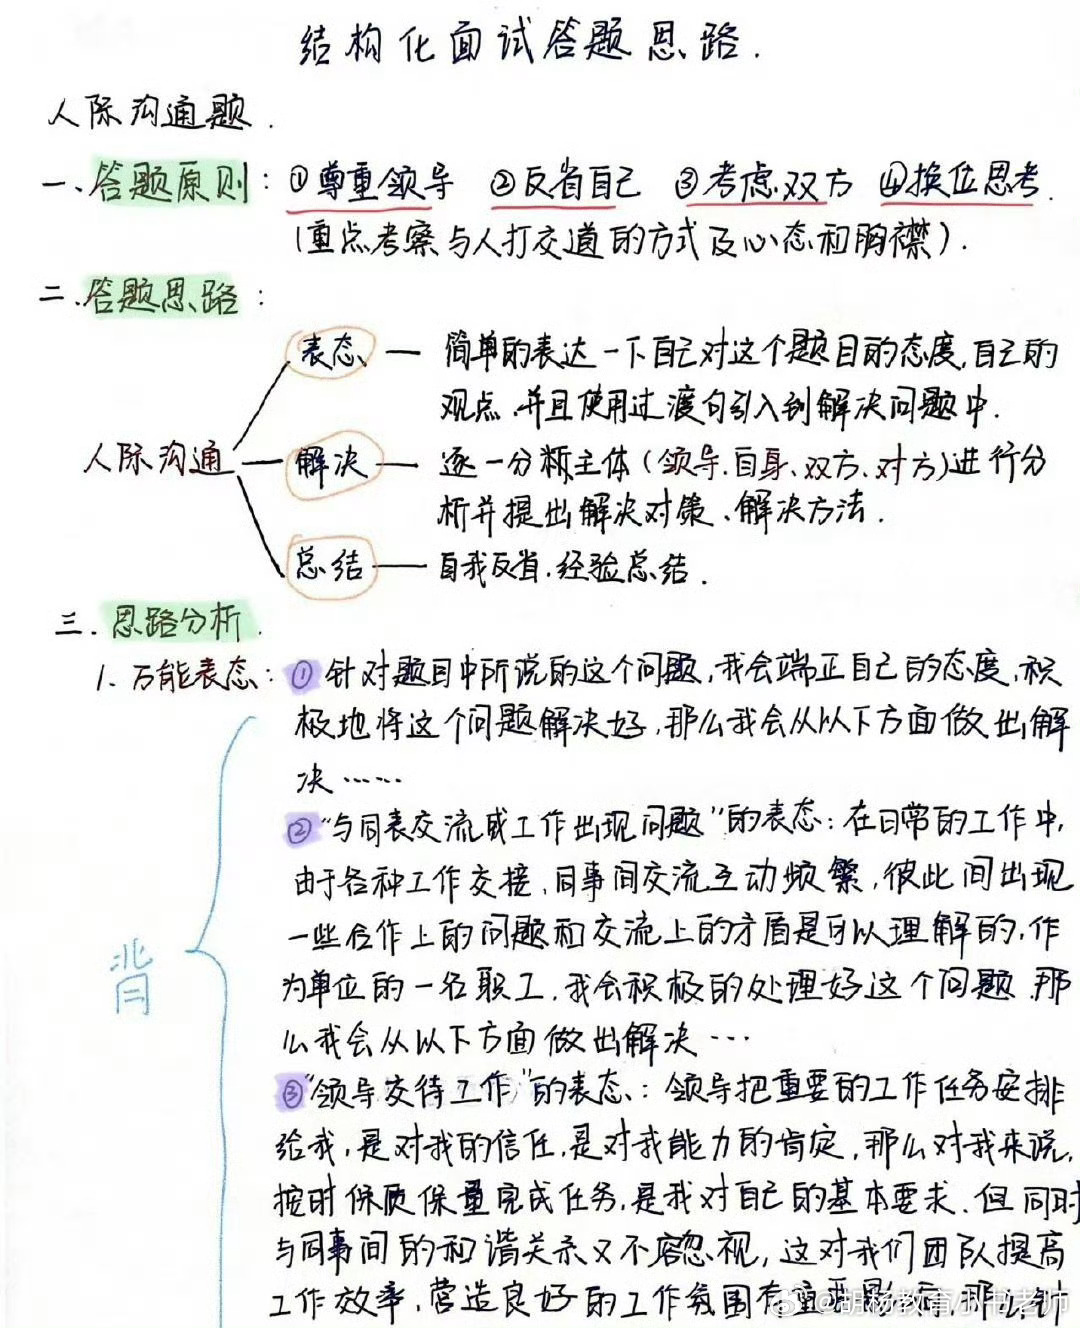 结构化面试答题思路.
人际沟通题.
一、答题原则：①尊重领导 ②反省自己 ③考虑双方 ④换位思考.
(重点考察与人打交道的方式及心态和胸襟).
二、答题思路：
表态 — 简单的表达一下自己对这个题目的态度,自己的
观点,并且使用过渡句引入到解决问题中.
人际沟通 — 解决 — 逐一分析主体(领导.自身、双方、对方)进行分
析并提出解决对策、解决方法.
总结 — 自我反省.经验总结.
三.思路分析.
1.万能表态：①针对题目中所说的这个问题,我会端正自己的态度,积
极地将这个问题解决好,那么我会从以下方面做出解
决……
②“与同表交流或工作出现问题”的表态：在日常的工作中,
由于各种工作交接、同事间交流互动频繁,彼此间出现
一些合作上的问题和交流上的矛盾是可以理解的,作
背
为单位的一名职工,我会积极的处理好这个问题,那
么我会从以下方面做出解决…
③“领导交待工作”的表态：领导把重要的工作任务安排
给我,是对我的信任,是对我能力的肯定,那么对我来说,
按时保质保量完成任务,是我对自己的基本要求.但同时
与同事间的和谐关系又不容忽视,这对我们团队提高
工作效率,营造良好的工作氛围有重要影响,那么,针
@胡杨教育小书老师